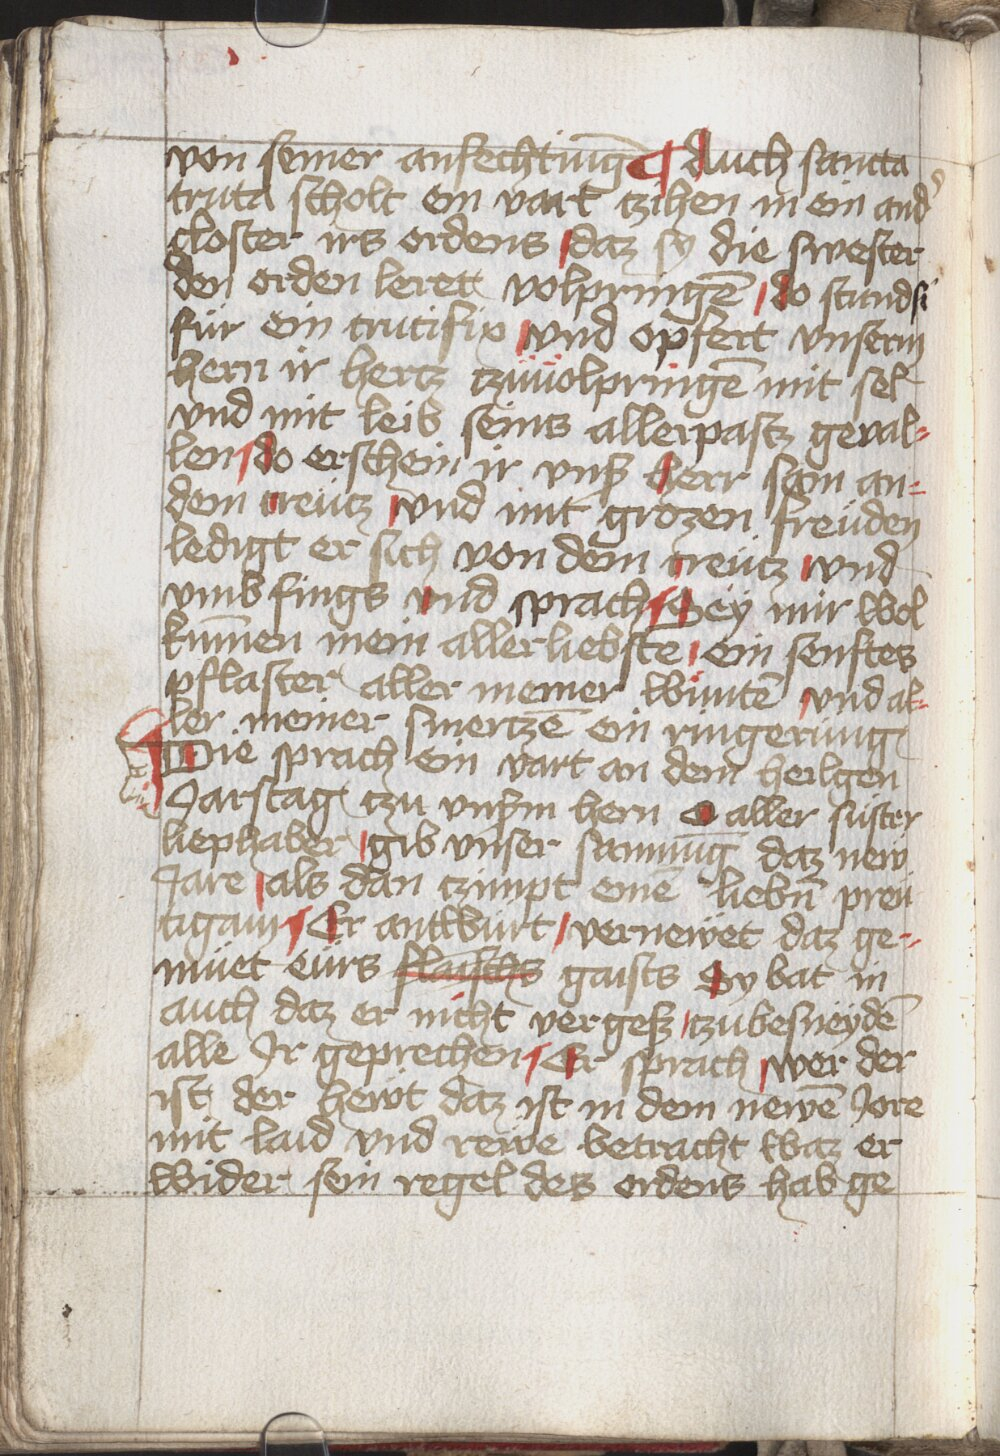 von seiner anfechtunḡ ¶ Auch sancta
truta scholt ein vart tzihen in ein and'
closter irs ordens / daz sy die swester
den orden lerett volpringē / do stund si
für ein crucifix / vnd opfert vnserm
hern ir hertz tzuuolpringē mit sel
vnd mit leib seins allerpastz geval-
len / do erschein ir vnß herr sam an-
dem creütz / vnd mit grozen freüden
ledigt er sich von dem creütz / vnd
vmb fings vnd sprach / Sey mir wol
kum̄en mein aller liebste / ein senftes
pflaster aller meiner wuntē / vnd al-
ler meiner smertzē ein ringerung
Die sprach ein vart an dem heilgen
Jarstag tzu vnßm hern O aller süster
liephaber / gib vnser samnūg daz new
Jare / als dan tzimpt einē liebn̄ preü
tigam / Er antwurt / vernewet daz ge-
müet eürs flaischs gaists Sy bat in
auch daz er nicht vergeß / tzubesneydē
alle Jr geprechen / Er sprach / wer der
ist der hewt daz ist in dem newē Jore
mit laid vnd rewe betracht waz er
wider sein regel des ordens hab ge